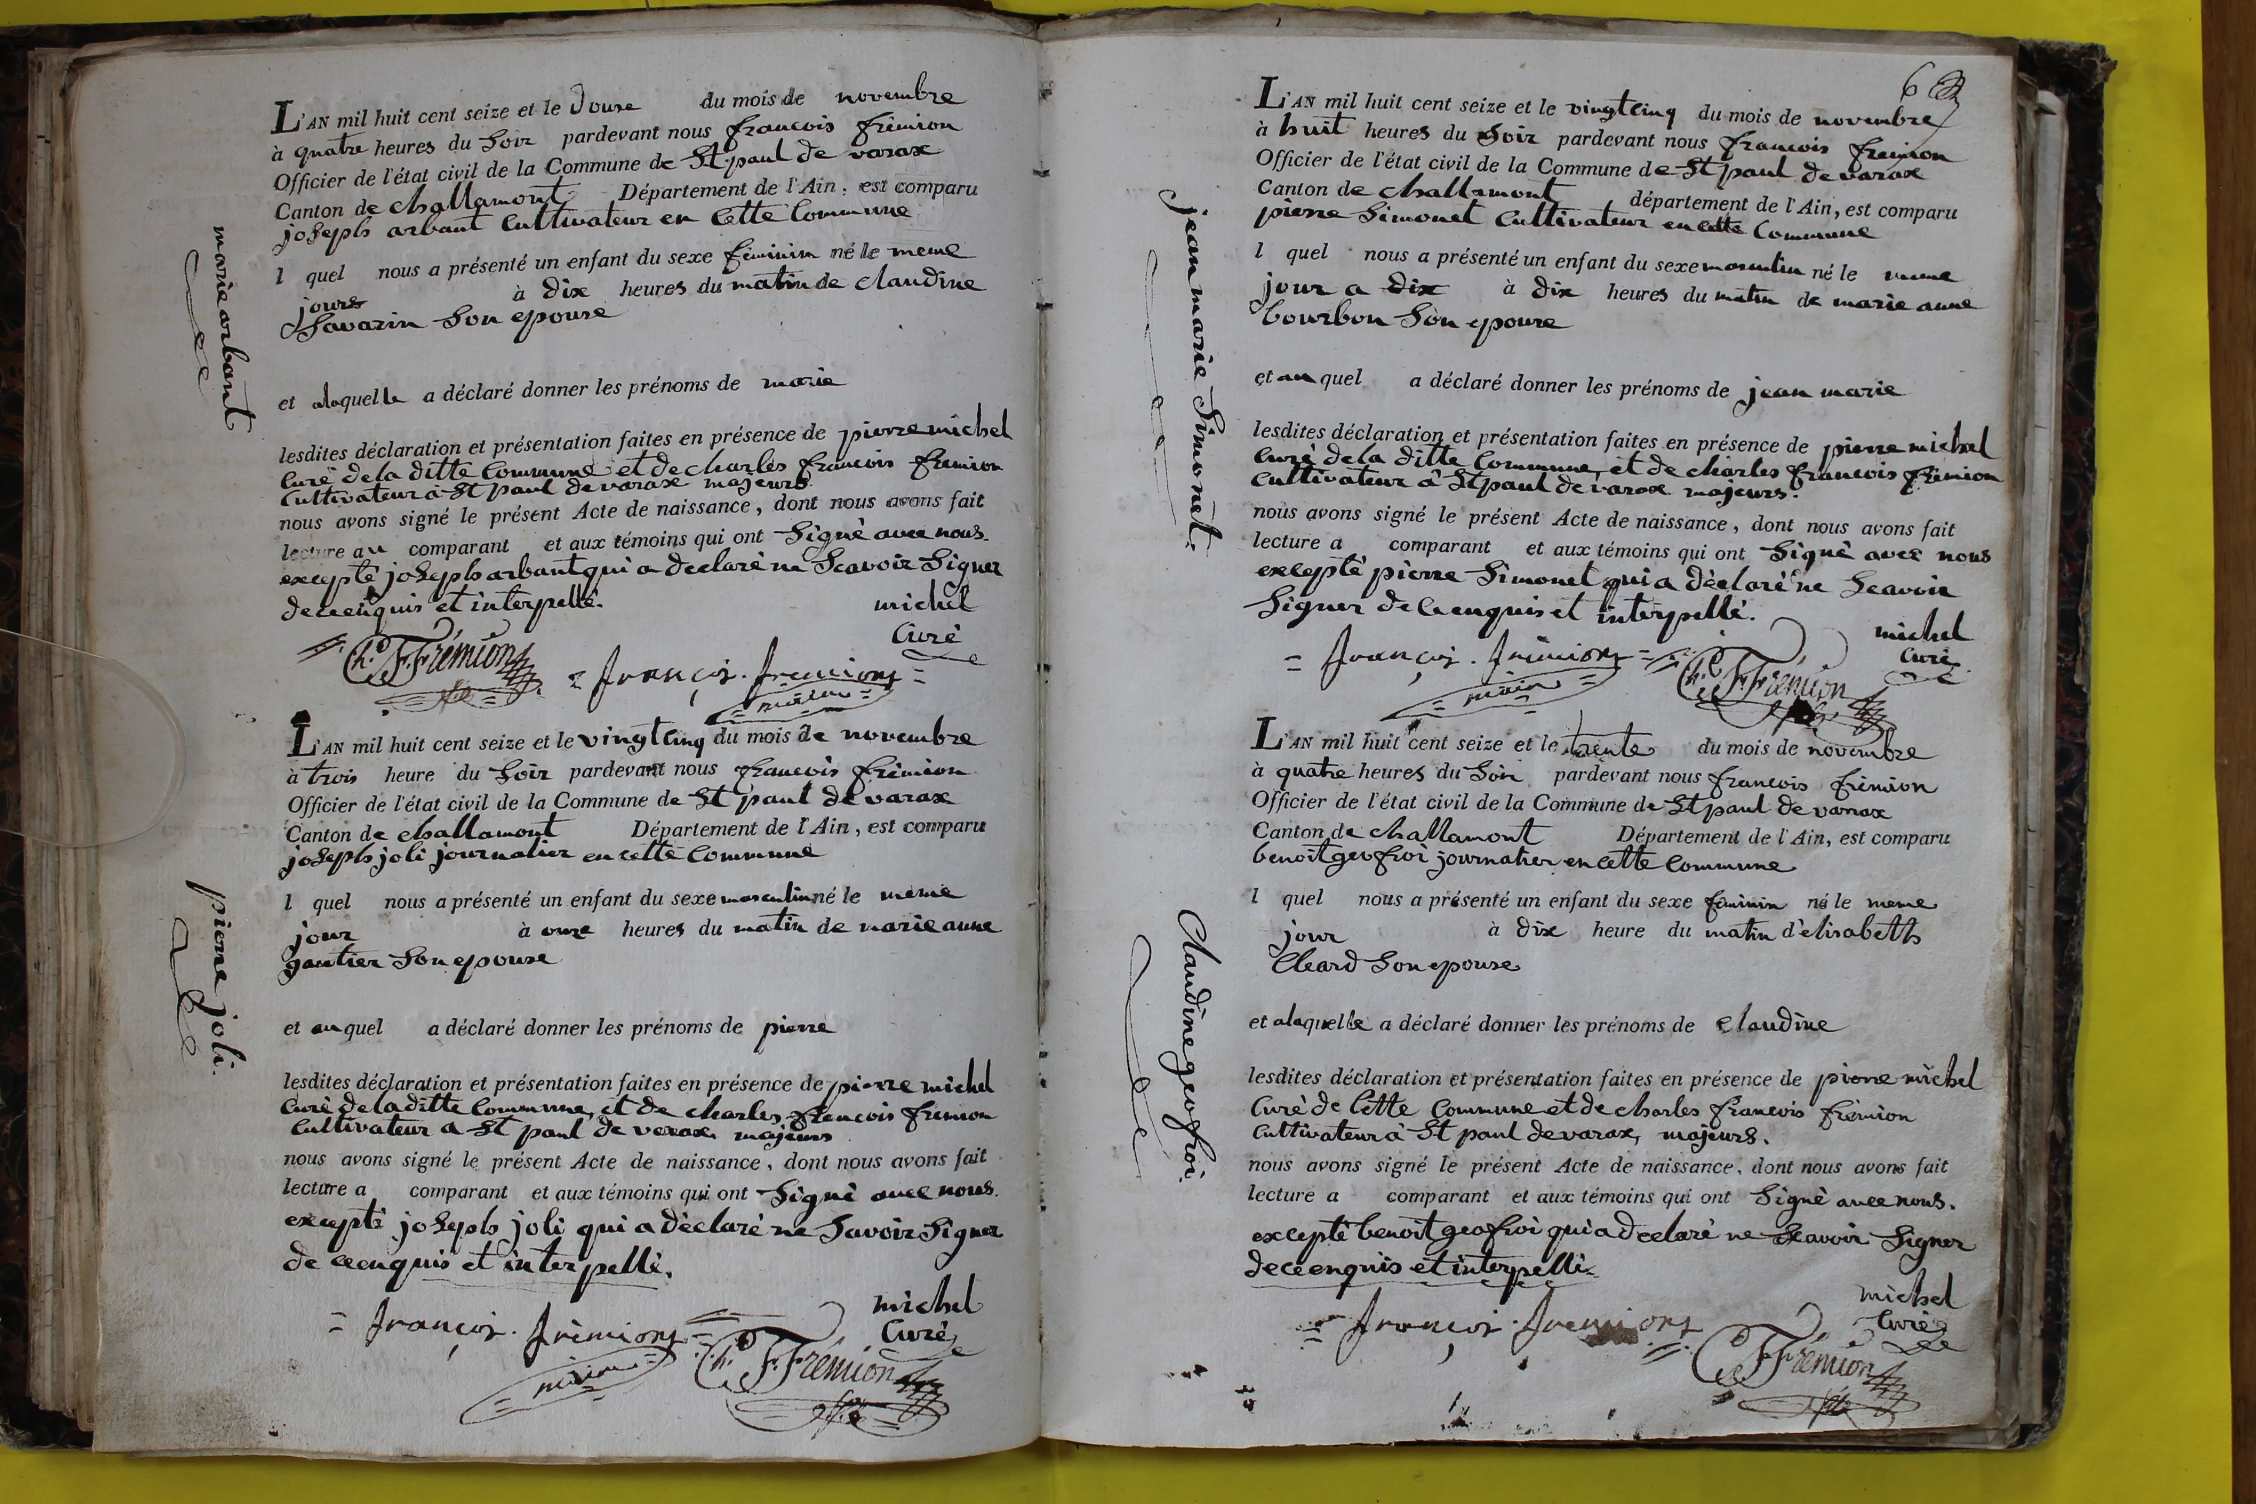 L'AN mil huit cent seize et le Douse du mois de novembre
à quatre heures du Soir pardevant nous francois frémion
Officier de l'état civil de la Commune de St paul de varax
Canton de challamont Département de l'Ain, est comparu
joseph arbant Cultivateur en Cette Commune
l quel nous a présenté un enfant du sexe féminin né le meme
jours à dix heures du matin de claudine
Savarin Son epouse
et alaquelle a déclaré donner les prénoms de marie
lesdites déclaration et présentation faites en présence de pierre michel
Curé dela ditte Commune et de charles francois fremion
Cultivateur a St paul de varax majeurs
nous avons signé le présent Acte de naissance, dont nous avons fait
lecture au comparant et aux témoins qui ont Signé avec nous.
excepté joseph arbant qui a declaré ne Scavoir Signer
de ce enquis et interpellé.
michel
Curé
Ch. F. Frémion
= françois. fremion =
maire
marie arbant
L'AN mil huit cent seize et le vingt cinq du mois de novembre
à trois heure du Soir pardevant nous francois frémion
Officier de l'état civil de la Commune de St paul de varax
Canton de challamont Département de l'Ain, est comparu
joseph joli journalier en cette Commune
l quel nous a présenté un enfant du sexe masculin né le meme
jour à onze heures du matin de marie anne
gautier Son epouse
et au quel a déclaré donner les prénoms de pierre
lesdites déclaration et présentation faites en présence de pierre michel
Curé dela ditte Commune, et de charles francois fremion
Cultivateur a St paul de varax majeurs
nous avons signé le présent Acte de naissance, dont nous avons fait
lecture a comparant et aux témoins qui ont Signé avec nous.
excepté joseph joli qui a déclaré ne Savoir Signer
de ce enquis et interpellé.
michel
Curé
= françois. frèmion =
maire
Ch. F. Frémion
pierre joli.
6
L'AN mil huit cent seize et le vingt cinq du mois de novembre
à huit heures du Soir pardevant nous francois fremion
Officier de l'état civil de la Commune de St paul de varax
Canton de challamont département de l'Ain, est comparu
pierre Simonet Cultivateur en cette Commune
l quel nous a présenté un enfant du sexe masculin né le meme
jour a dix à dix heures du matin de marie anne
bourbon Son epouse
et au quel a déclaré donner les prénoms de jean marie
lesdites déclaration et présentation faites en présence de pierre michel
Curé dela ditte Commune, et de charles francois frémion
Cultivateur à St paul de varax majeurs.
nous avons signé le présent Acte de naissance, dont nous avons fait
lecture a comparant et aux témoins qui ont Signé avec nous
excepté pierre Simonet qui a déclaré ne Scavoir
Signer de ce enquis et interpellé.
michel
Curé
= françois. frèmion =
maire
Ch. F. Frémion
jean marie Simonet.
L'AN mil huit cent seize et le trente du mois de novembre
à quatre heures du Soir pardevant nous francois fremion
Officier de l'état civil de la Commune de St paul de varax
Canton de challamont Département de l'Ain, est comparu
benoit geofroi journalier en cette commune
l quel nous a présenté un enfant du sexe féminin né le meme
jour à dix heure du matin d'èlisabeth
Cleard Son epouse
et alaquelle a déclaré donner les prénoms de claudine
lesdites déclaration et présentation faites en présence de pierre michel
Curé de Cette Commune et de charles francois frémion
Cultivateur à St paul de varax, majeurs.
nous avons signé le présent Acte de naissance, dont nous avons fait
lecture a comparant et aux témoins qui ont Signé avec nous.
excepté benoit geofroi qui a declaré ne Scavoir Signer
de ce enquis et interpellé.
michel
Curé
= françois. fremion
Ch. F. Frémion
Claudine geofroi.